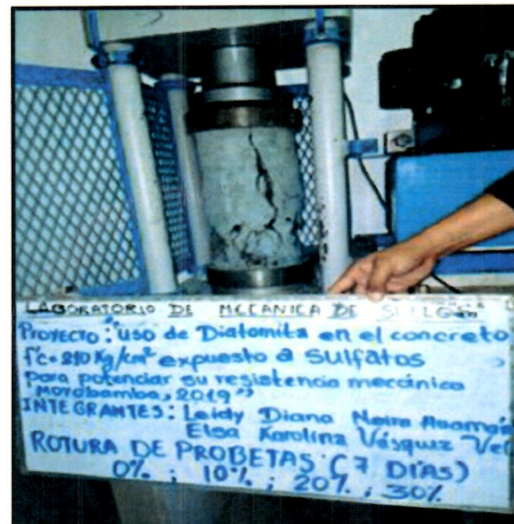 LABORATORIO DE MECANICA DE
PROYECTO: "uso de Diatomita en el concreto
f'c=210 Kg/cm² expuesto a Sulfatos
para potenciar su resistencia mecánica
Moyobamba, 2019"
INTEGRANTES: Leidy Diana Neira
Elsa Karolina Vásquez
ROTURA DE PROBETAS (7 DÍAS)
0% ; 10% ; 20% ; 30%